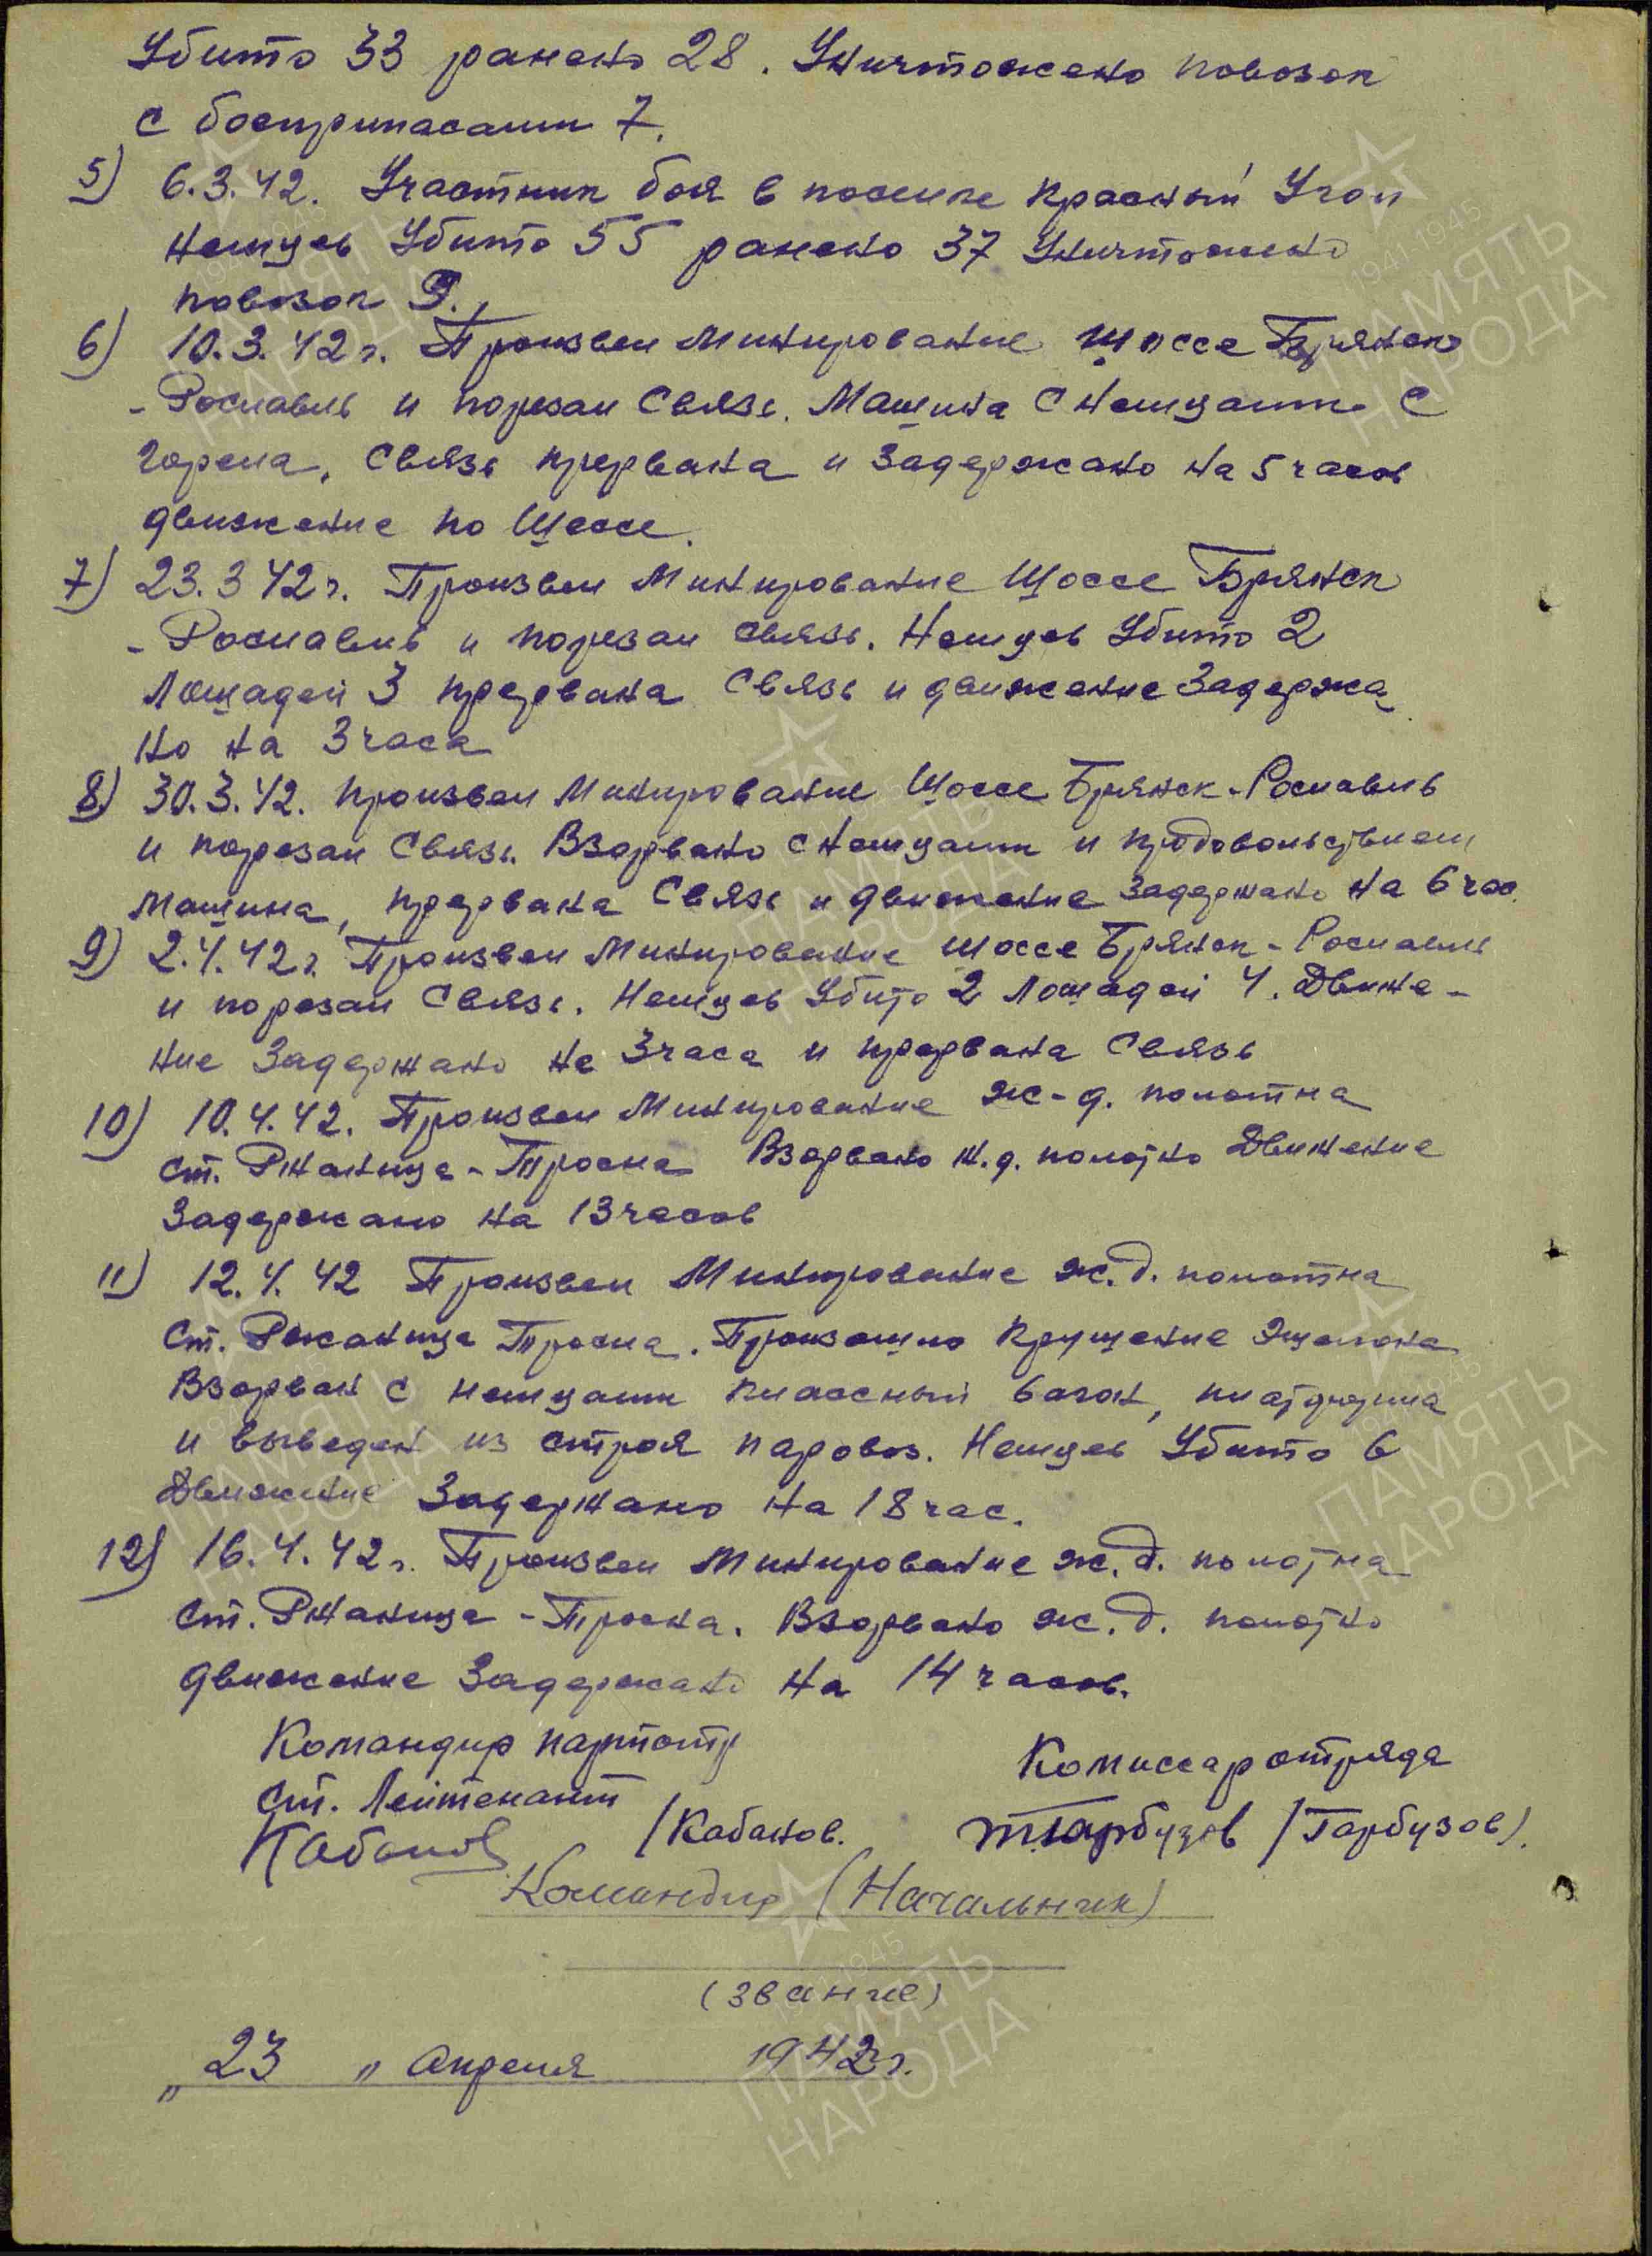 Убито 33 ранено 28. Уничтожено повозок
с боеприпасами 7.
5) 6.3.42. Участник боя в поселке Красный Угол
Немцев Убито 55 ранено 37 Уничтожено
повозок 9.
6) 10.3.42 г. Произвел Минирование Шоссе Брянск
- Рославль и порезал Связь. Машина С Немцами С
горела, Связь прервана и Задержано на 5 часов
движение по Шоссе.
7) 23.3 42 г. Произвел Минирование Шоссе Брянск
- Рославль и порезал связь. Немцев Убито 2
Лошадей 3 прервана Связь и движение Задержа
но на 3 часа
8) 30.3.42. произвел Минирование Шоссе Брянск-Рославль
и порезал Связь. Взорвано с Немцами и продовольствием
Машина, прервана Связь и движение задержано на 6 час.
9) 2.4.42 г. Произвел Минирование шоссе Брянск - Рославль
и порезал Связь. Немцев Убито 2 Лошадей 4. Движе-
ние Задержано на 3 часа и прервана Связь
10) 10.4.42. Произвел Минирование ж-д. полотна
ст. Ржаница - Тросна Взорвано ж.д. полотно Движение
Задержано на 13 часов
11) 12.4.42 Произвел Минирование ж.д. полотна
ст. Ржаница Тросна. Произошло Крушение Эшелона
Взорван с немцами классный вагон, платформа
и выведен из строя паровоз. Немцев Убито 6
Движение Задержано на 18 час.
12) 16.4.42 г. Произвел Минирование ж.д. полотна
ст. Ржаница - Тросна. Взорвано ж.д. полотно
движение Задержано на 14 часов.
Командир партотр Комиссар отряда
ст. Лейтенант
Кабанов /Кабанов. Гарбузов /Гарбузов/.
Командир (Начальник)
(звание)
„ 23 „ Апреля 1942 г.
ПАМЯТЬ
НАРОДА
1941-1945